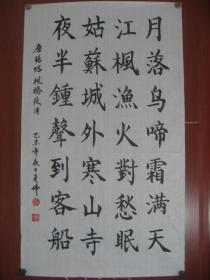 月落乌啼霜满天
江楓漁火對愁眠
姑蘇城外寒山寺
夜半鍾聲到客船
唐張继楓橋夜泊
乙未年